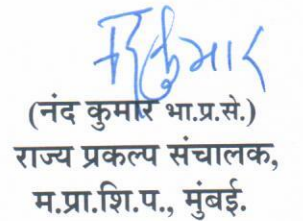 (नंद कुमार भा.प्र.से.)
राज्य प्रकल्प संचालक,
म.प्रा.शि.प., मुंबई.